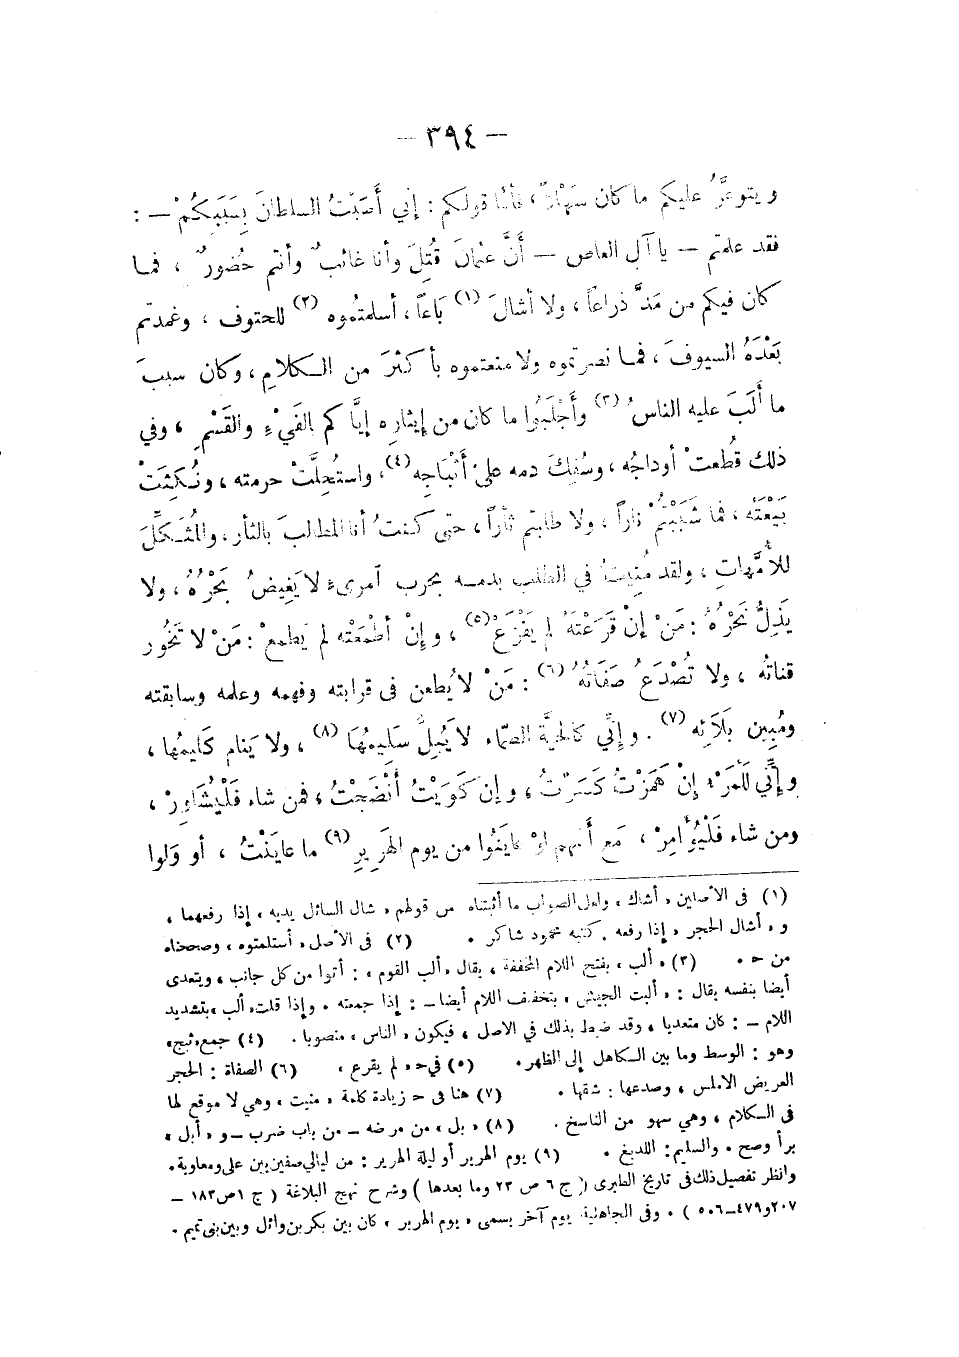 — ٣٩٤ —
ويتوعَّرُ عليكم ما كان سَهْلاً، فأمَّا قولكم : إني أَصَبْتُ السلطانَ بِسَبَبِكُمْ — :
فقد علمتم — يا آل العاص — أَنَّ عثمانَ قُتِلَ وأنا غائبٌ وأنتم حُضورٌ ، فمـا
كان فيكم من مَدَّ ذراعاً ، ولا أشالَ (١) بَاعاً ، أسلمتُموه (٢) للحتوف ، وغمدتم
بَعْدَهُ السيوفَ ، فمـا نصرتموه ولا منعتموه بأكثَرَ من الـكلامِ ، وكان سببَ
ما أَلَبَ عليه الناسُ (٣) وأَجْلَبُوا ما كان من إيثارِه إيَّاكم بالفَيْءِ والقَسْمِ ، وفي
ذلك قُطعتْ أوداجُه ، وسُفِكَ دمه على أَثْبَاجِه (٤) ، واستُحِلَّتْ حرمته ، ونُـكِثَتْ
بَيْعَتُه ، فما شَبَبْتُمْ ناراً ، ولا طلبتم ثأراً ، حتى كنتُ أنا المطالبَ بالثأر ، والمُثـكِّلَ
للأُمَّهاتِ ، ولقد مُنِيتُ في الطلب بدمـه بحرب آمرئ لا يَغِيضُ بَحْرُهُ ، ولا
يَذِلُّ نَحْرُهُ : مَنْ إنْ قَرَعْتَهُ لم يَفْزَعْ (٥) ، وإنْ أطْمَعْتَه لم يَطمعْ : مَنْ لا تَخُور
قناتُه ، ولا تُصْدَعُ صَفَاتُهُ (٦) : مَنْ لا يُطعن فى قرابته وفهمه وعلمه وسابقته
ومُبِينِ بَلَائِه (٧) . وإنِّي كالحيَّةِ الصمَّاء لا يَبِلُّ سَلِيمُها (٨) ، ولا ينام كَلِيمُها ،
وإنِّي لَلْمَرْءُ إنْ هَمَزْتُ كَسَرْتُ ، وإن كَوَيْتُ أَنْضَجْتُ ، فمن شاء فَلْيُشَاوِرْ ،
ومن شاء فَلْيُؤَامِرْ ، مَع أنهم لوْ عايَنُوا من يوم الهَرِيرِ (٩) ما عايَنْتُ ، أو وَلُوا
(١) فى الأصلين « أشاك » ولعل الصواب ما أثبتناه من قولهم « شال السائل يديه » إذا رفعهما ،
و « أشال الحجر » إذا رفعه . كتبه محمود شاكر . (٢) فى الأصل « أستلمتوه » وصححناه
من ح . (٣) « ألب » بفتح اللام المخففة ، يقال « ألب القوم » : أتوا من كل جانب ، ويتعدى
أيضا بنفسه يقال : « ألبت الجيش » بتخفيف اللام أيضا — : إذا جمعته . وإذا قلت « ألب » بتشديد
اللام — : كان متعديا ، وقد ضبط بذلك في الاصل ، فيكون « الناس » منصوبا . (٤) جمع « ثبج »
وهو : الوسط وما بين الـكاهل إلى الظهر . (٥) في ح « لم يقرع » (٦) الصفاة : الحجر
العريض الاملس ، وصدعها : شقها . (٧) هنا فى ح زيادة كلمة « منيت » وهي لا موقع لها
فى الـكلام ، وهي سهو من الناسخ . (٨) « بل » من مرضه — من باب ضرب — و « أبل »
برأ وصح . والسليم : اللديغ . (٩) يوم الهرير أو ليلة الهرير : من ليالي صفين بين على ومعاوية .
وانظر تفصيل ذلك فى تاريخ الطبرى ( ج ٦ ص ٢٣ وما بعدها ) وشرح نهج البلاغة ( ج ١ ص ١٨٣ —
٢٠٧ و ٤٧٩ — ٥٠٦ ) . وفى الجاهلية يوم آخر يسمى « يوم الهرير » كان بين بكر بن وائل وبين بنى تميم .